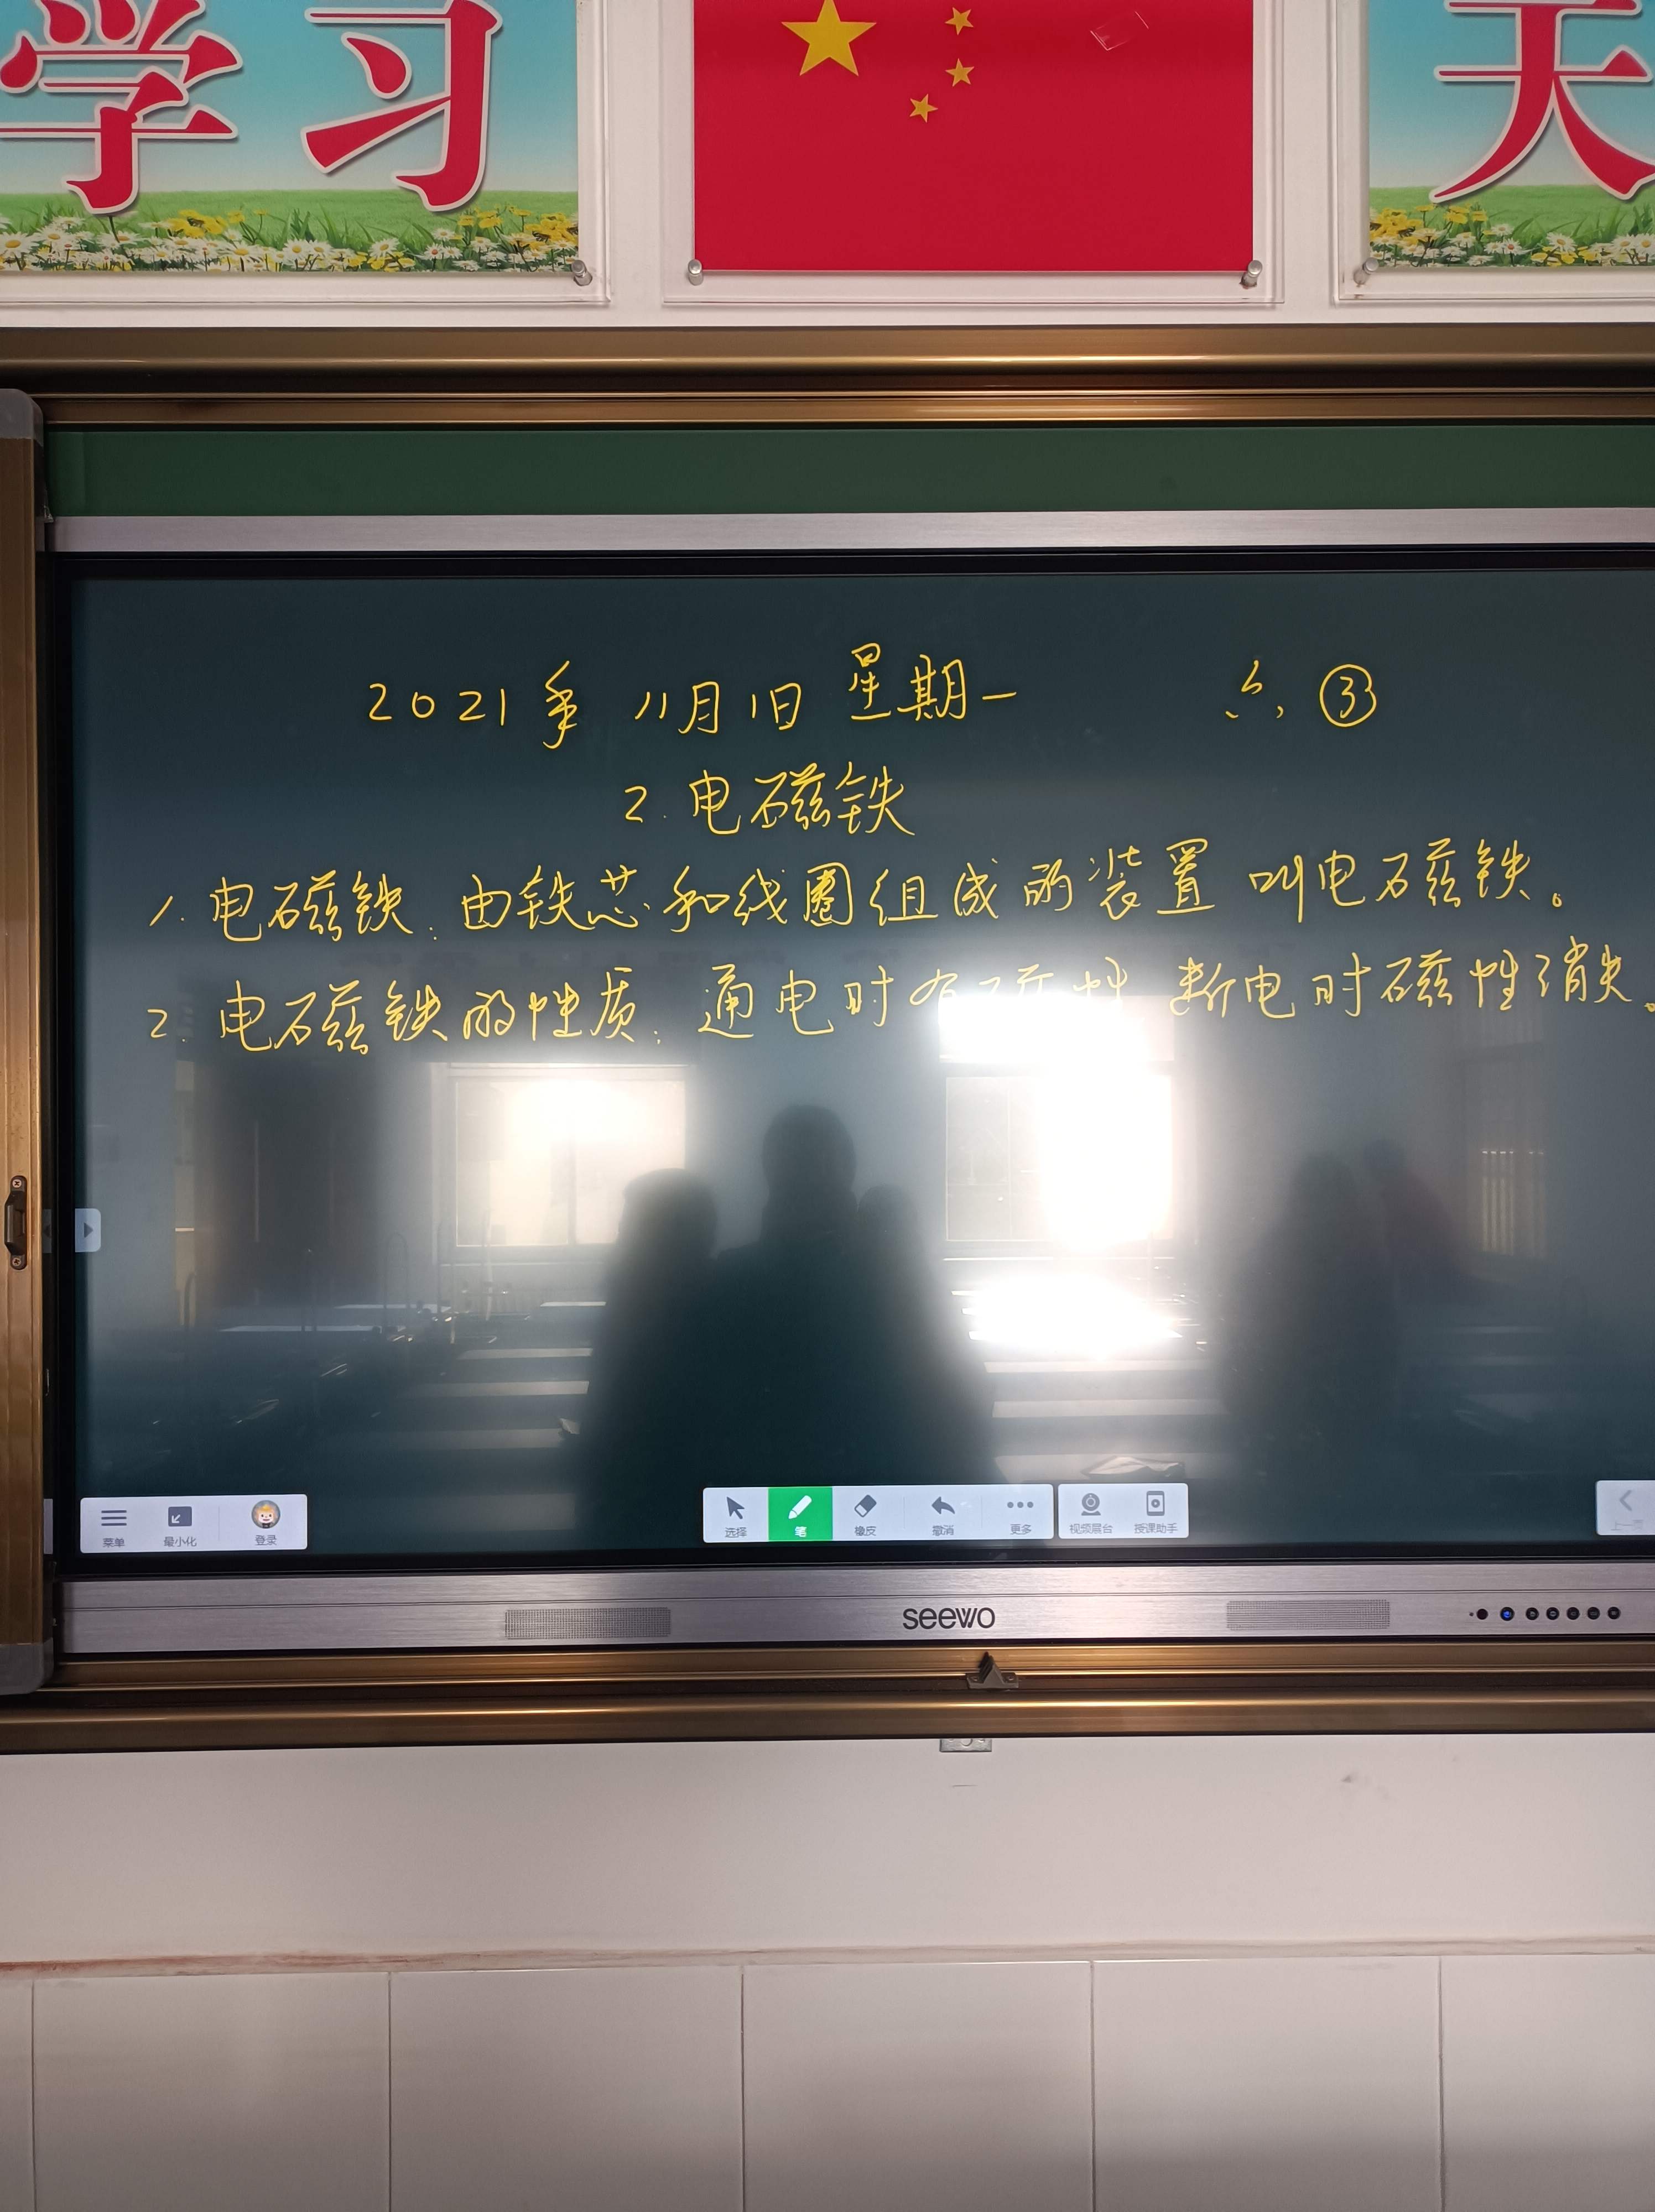 学习
天
2021年 11月1日 星期一 六③
2.电磁铁
1.电磁铁:由铁芯和线圈组成的装置叫电磁铁。
2.电磁铁的性质:通电时有磁性 断电时磁性消失。
菜单 最小化 登录 选择 笔 橡皮 撤消 更多 视频展台 授课助手 上一页
seewo